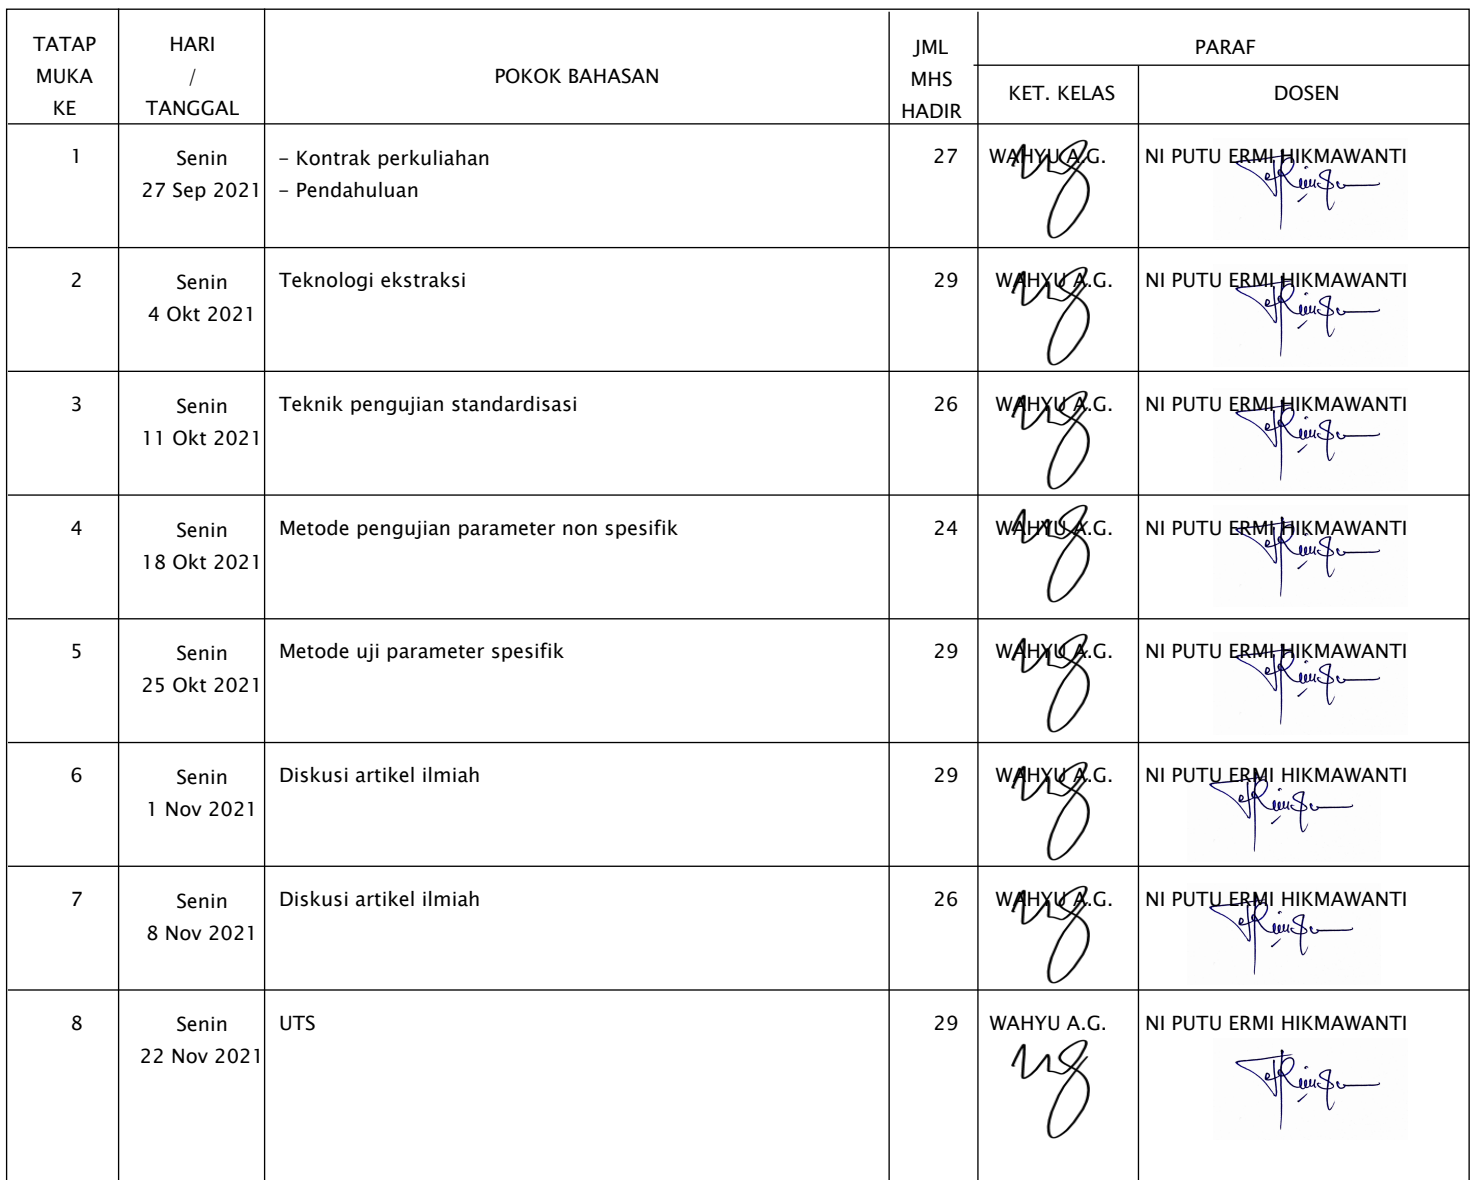 TATAP MUKA KE
HARI / TANGGAL
POKOK BAHASAN
JML MHS HADIR
PARAF
KET. KELAS
DOSEN
1
Senin
27 Sep 2021
– Kontrak perkuliahan
– Pendahuluan
27
WAHYU A.G.
NI PUTU ERMI HIKMAWANTI
2
Senin
4 Okt 2021
Teknologi ekstraksi
29
WAHYU A.G.
NI PUTU ERMI HIKMAWANTI
3
Senin
11 Okt 2021
Teknik pengujian standardisasi
26
WAHYU A.G.
NI PUTU ERMI HIKMAWANTI
4
Senin
18 Okt 2021
Metode pengujian parameter non spesifik
24
WAHYU A.G.
NI PUTU ERMI HIKMAWANTI
5
Senin
25 Okt 2021
Metode uji parameter spesifik
29
WAHYU A.G.
NI PUTU ERMI HIKMAWANTI
6
Senin
1 Nov 2021
Diskusi artikel ilmiah
29
WAHYU A.G.
NI PUTU ERMI HIKMAWANTI
7
Senin
8 Nov 2021
Diskusi artikel ilmiah
26
WAHYU A.G.
NI PUTU ERMI HIKMAWANTI
8
Senin
22 Nov 2021
UTS
29
WAHYU A.G.
NI PUTU ERMI HIKMAWANTI